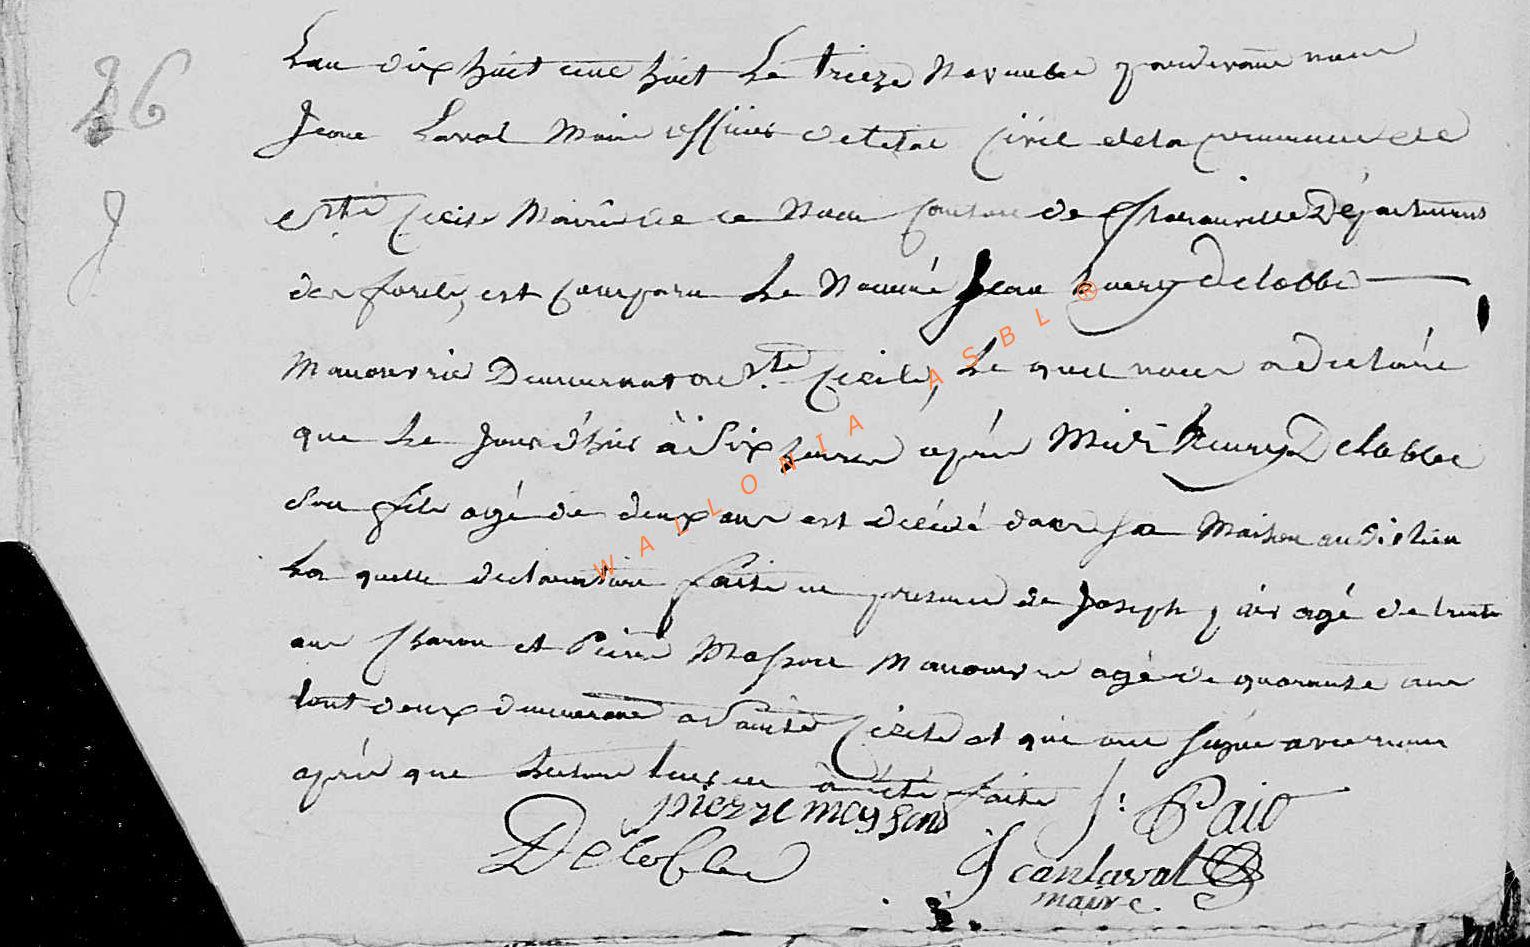 26
J
L'an dix huit cent huit Le treize Novembre pardevant nous
Jean Laval Maire officier de l'etat Civil de la commune de
Ste Cecile Mairie de ce Nom Canton de Florenville Département
des forets, est comparu Le Nommé Jean henry Delobbe
Manouvrié Demeurant a Ste Cecile, Le quel nous a declaré
que Le Jour d'hier à Six heures après Midi henry Delobbe
Son fils agé de deux ans est décédé dans sa Maison audit lieu
La quelle declaration faite en presence de Joseph agé de trente
ans Charon et Pierre Masson Manouvrié agé de quarante ans
tout deux demeurant a Sainte Cécile et qui ont signé avec nous
après que lecture leur en a été faite
pierre massond J: Paio
Delobbe
Jean Laval
maire
WALLONIA ASBL ®